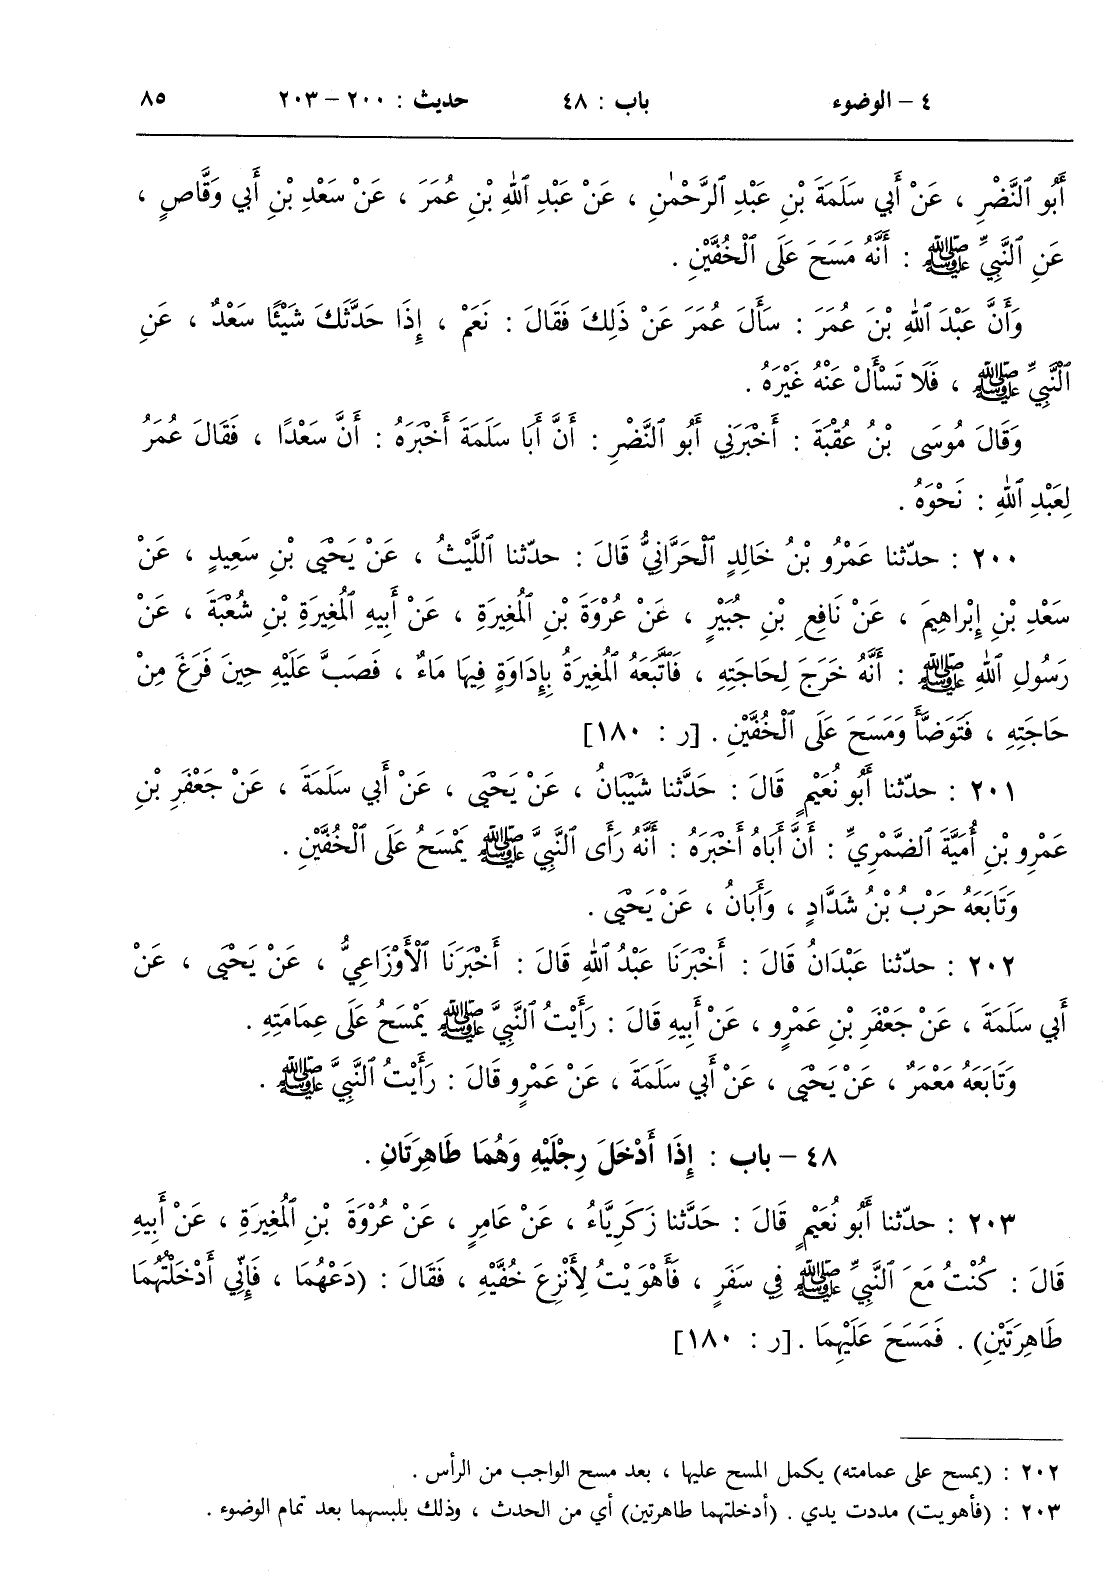 ٤ – الوضوء باب : ٤٨ حديث : ٢٠٠ – ٢٠٣ ٨٥
أَبُو ٱلنَّضْرِ ، عَنْ أَبِي سَلَمَةَ بْنِ عَبْدِ ٱلرَّحْمٰنِ ، عَنْ عَبْدِ ٱللهِ بْنِ عُمَرَ ، عَنْ سَعْدِ بْنِ أَبِي وَقَّاصٍ ،
عَنِ ٱلنَّبِيِّ ﷺ : أَنَّهُ مَسَحَ عَلَى ٱلْخُفَّيْنِ .
وَأَنَّ عَبْدَ ٱللهِ بْنَ عُمَرَ : سَأَلَ عُمَرَ عَنْ ذَلِكَ فَقَالَ : نَعَمْ ، إِذَا حَدَّثَكَ شَيْئًا سَعْدٌ ، عَنِ
ٱلنَّبِيِّ ﷺ ، فَلَا تَسْأَلْ عَنْهُ غَيْرَهُ .
وَقَالَ مُوسَى بْنُ عُقْبَةَ : أَخْبَرَنِي أَبُو ٱلنَّضْرِ : أَنَّ أَبَا سَلَمَةَ أَخْبَرَهُ : أَنَّ سَعْدًا ، فَقَالَ عُمَرُ
لِعَبْدِ ٱللهِ : نَحْوَهُ .
٢٠٠ : حدّثنا عَمْرُو بْنُ خَالِدٍ ٱلْحَرَّانِيُّ قَالَ : حدّثنا اللَّيْثُ ، عَنْ يَحْيَى بْنِ سَعِيدٍ ، عَنْ
سَعْدِ بْنِ إِبْراهِيمَ ، عَنْ نَافِعِ بْنِ جُبَيْرٍ ، عَنْ عُرْوَةَ بْنِ ٱلمُغِيرَةِ ، عَنْ أَبِيهِ ٱلمُغِيرَةِ بْنِ شُعْبَةَ ، عَنْ
رَسُولِ ٱللهِ ﷺ : أَنَّهُ خَرَجَ لِحَاجَتِهِ ، فَاتَّبَعَهُ ٱلمُغِيرَةُ بِإِدَاوَةٍ فِيهَا مَاءٌ ، فَصَبَّ عَلَيْهِ حِينَ فَرَغَ مِنْ
حَاجَتِهِ ، فَتَوَضَّأَ وَمَسَحَ عَلَى ٱلْخُفَّيْنِ . [ر : ١٨٠]
٢٠١ : حدّثنا أَبُو نُعَيْمٍ قَالَ : حَدَّثنا شَيْبَانُ ، عَنْ يَحْيَى ، عَنْ أَبِي سَلَمَةَ ، عَنْ جَعْفَرِ بْنِ
عَمْرِو بْنِ أُمَيَّةَ ٱلضَّمْرِيِّ : أَنَّ أَبَاهُ أَخْبَرَهُ : أَنَّهُ رَأَى ٱلنَّبِيَّ ﷺ يَمْسَحُ عَلَى ٱلْخُفَّيْنِ .
وَتَابَعَهُ حَرْبُ بْنُ شَدَّادٍ ، وَأَبَانُ ، عَنْ يَحْيَى .
٢٠٢ : حدّثنا عَبْدَانُ قَالَ : أَخْبَرَنَا عَبْدُ ٱللهِ قَالَ : أَخْبَرَنَا ٱلْأَوْزَاعِيُّ ، عَنْ يَحْيَى ، عَنْ
أَبِي سَلَمَةَ ، عَنْ جَعْفَرِ بْنِ عَمْرٍو ، عَنْ أَبِيهِ قَالَ : رَأَيْتُ ٱلنَّبِيَّ ﷺ يَمْسَحُ عَلَى عِمَامَتِهِ .
وَتَابَعَهُ مَعْمَرٌ ، عَنْ يَحْيَى ، عَنْ أَبِي سَلَمَةَ ، عَنْ عَمْرٍو قَالَ : رَأَيْتُ ٱلنَّبِيَّ ﷺ .
٤٨ – باب : إِذَا أَدْخَلَ رِجْلَيْهِ وَهُمَا طَاهِرَتَانِ .
٢٠٣ : حدّثنا أَبُو نُعَيْمٍ قَالَ : حَدَّثنا زَكَرِيَّاءُ ، عَنْ عَامِرٍ ، عَنْ عُرْوَةَ بْنِ ٱلمُغِيرَةِ ، عَنْ أَبِيهِ
قَالَ : كُنْتُ مَعَ ٱلنَّبِيِّ ﷺ فِي سَفَرٍ ، فَأَهْوَيْتُ لِأَنْزِعَ خُفَّيْهِ ، فَقَالَ : (دَعْهُمَا ، فَإِنِّي أَدْخَلْتُهُمَا
طَاهِرَتَيْنِ) . فَمَسَحَ عَلَيْهِمَا . [ر : ١٨٠]
٢٠٢ : (يمسح على عمامته) يكمل المسح عليها ، بعد مسح الواجب من الرأس .
٢٠٣ : (فأهويت) مددت يدي . (أدخلتهما طاهرتين) أي من الحدث ، وذلك بلبسهما بعد تمام الوضوء .